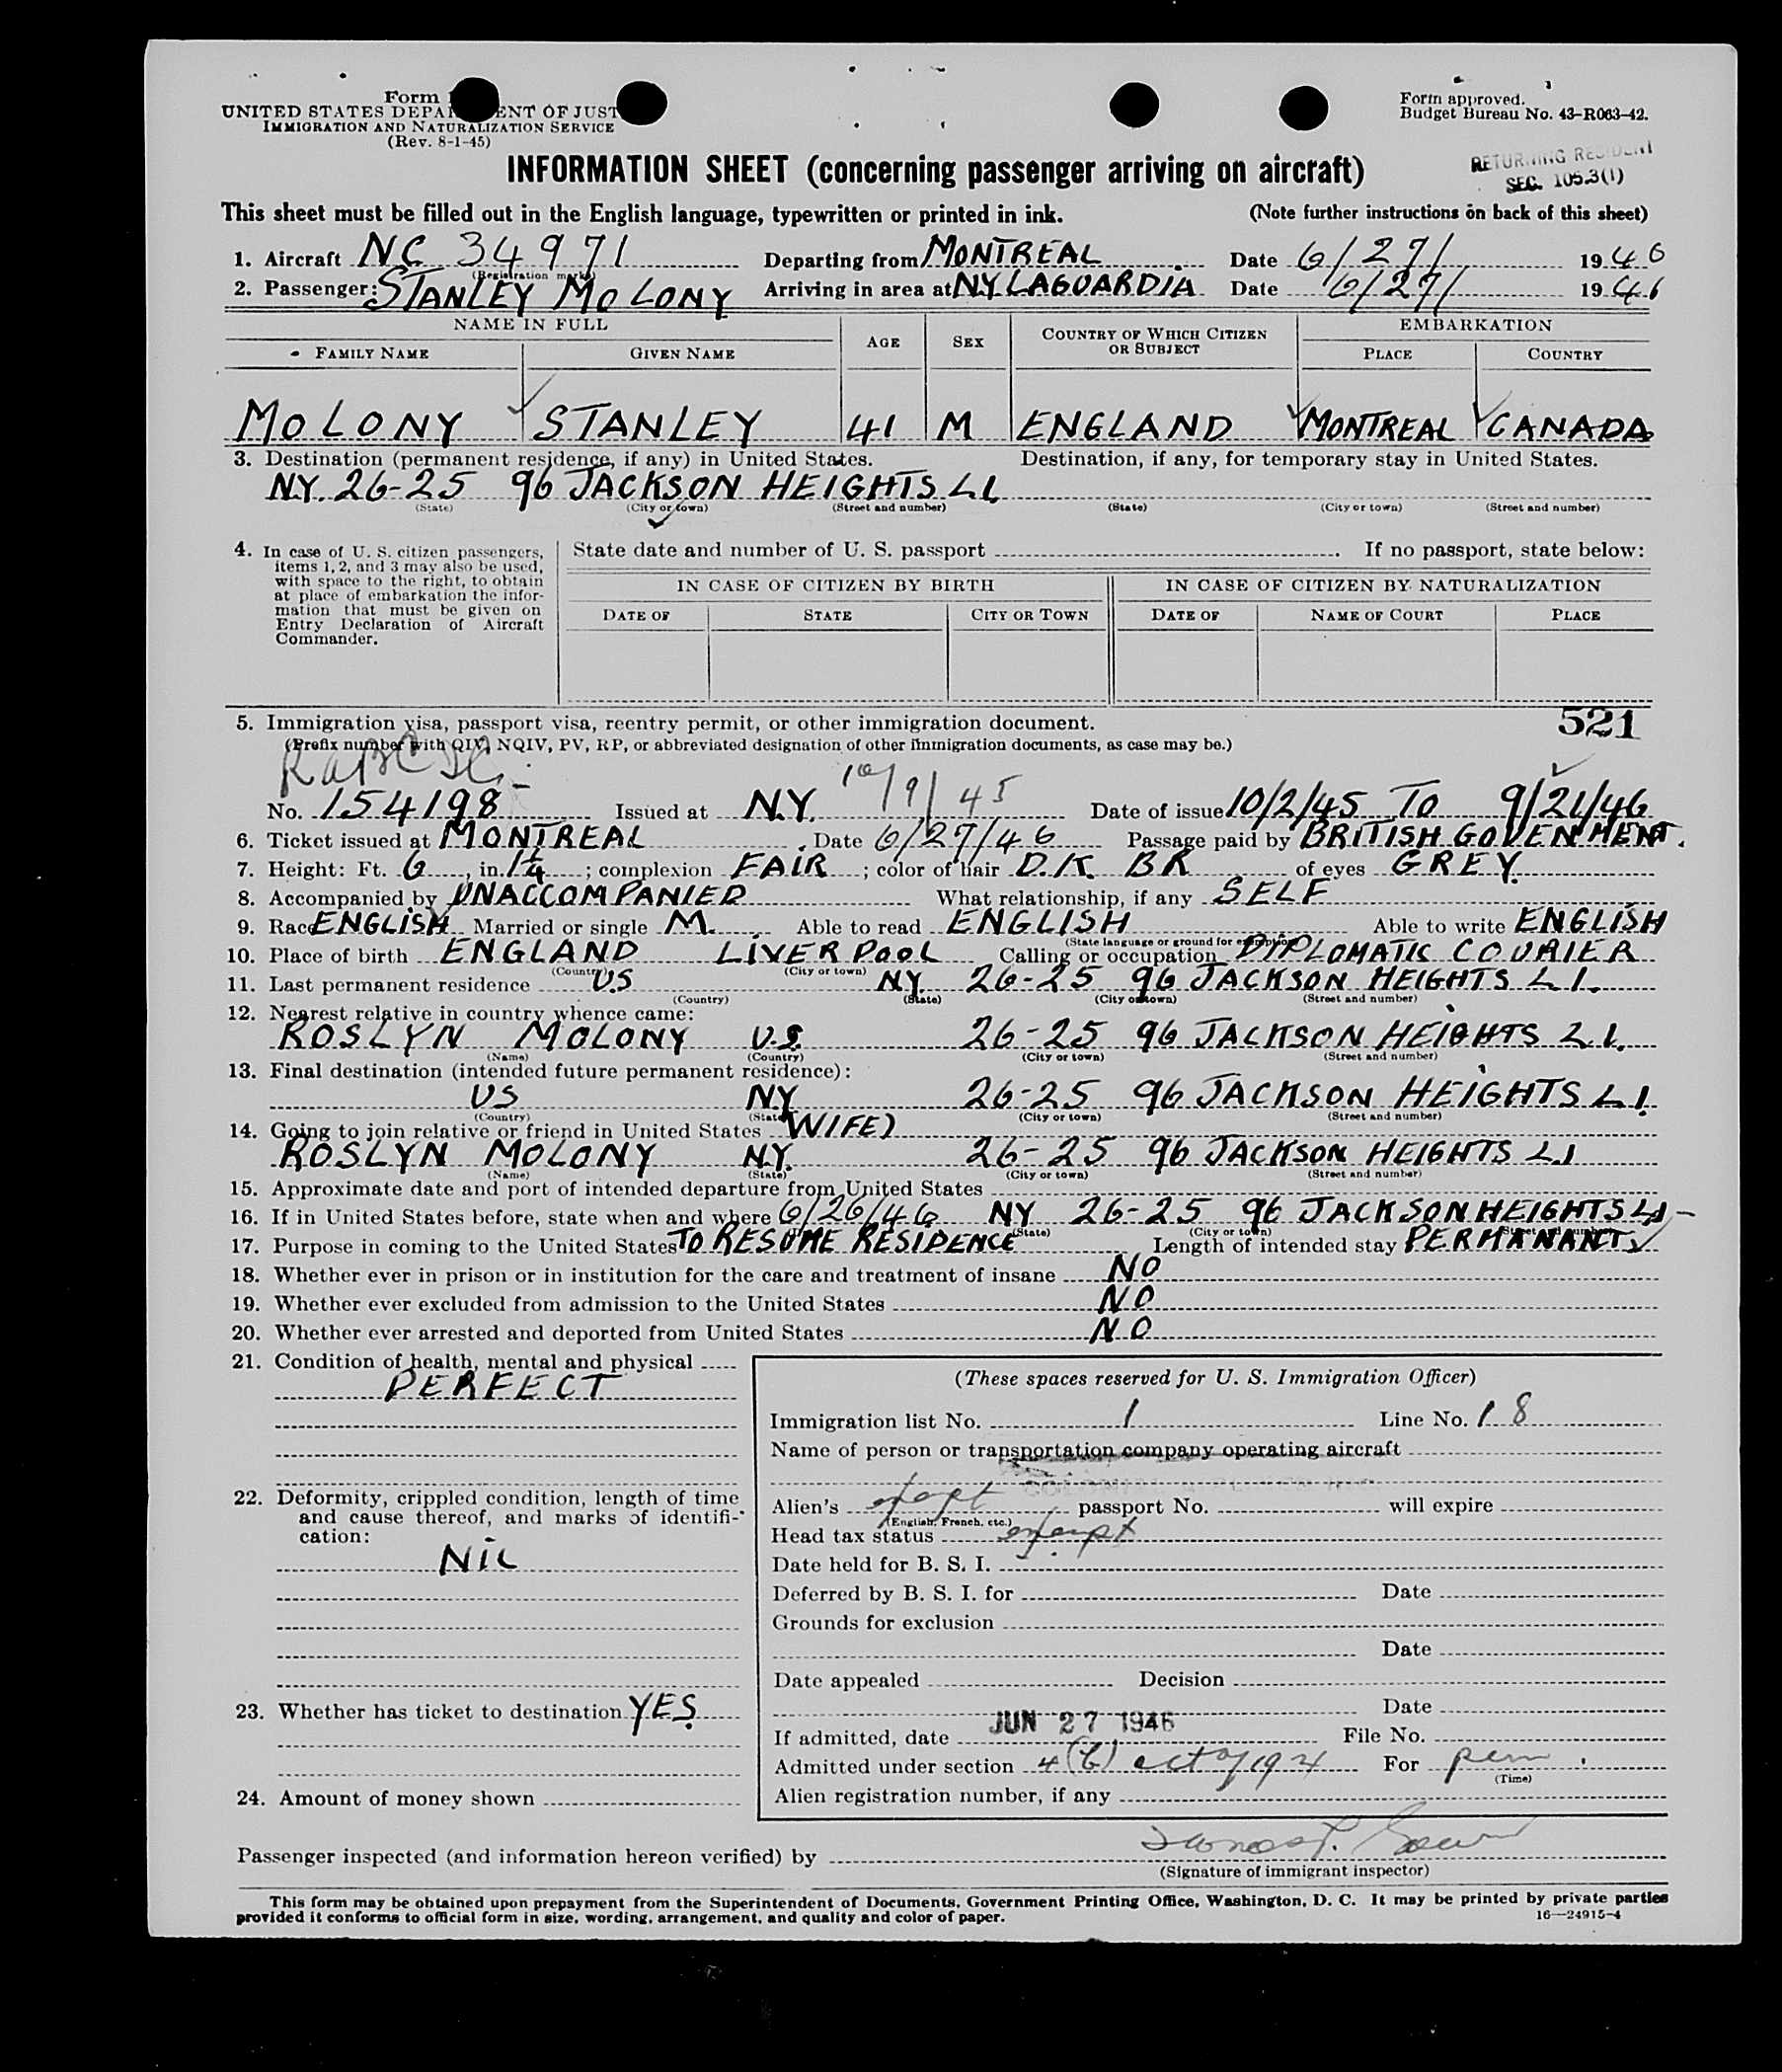 Form
UNITED STATES DEPA ENT OF JUST
IMMIGRATION AND NATURALIZATION SERVICE
(Rev. 8-1-45)
Form approved.
Budget Bureau No. 43-R063-42.
INFORMATION SHEET (concerning passenger arriving on aircraft)
RETURNING RESIDENT
SEC. 105.3(1)
This sheet must be filled out in the English language, typewritten or printed in ink. (Note further instructions on back of this sheet)
1. Aircraft NC 34971 Departing from MONTREAL Date 6/27/ 1946
(Registration marks)
2. Passenger: STANLEY MOLONY Arriving in area at NY LAGUARDIA Date 6/27/ 1946
NAME IN FULL AGE SEX COUNTRY OF WHICH CITIZEN OR SUBJECT EMBARKATION
FAMILY NAME GIVEN NAME PLACE COUNTRY
MOLONY STANLEY 41 M ENGLAND MONTREAL CANADA
3. Destination (permanent residence, if any) in United States. Destination, if any, for temporary stay in United States.
N.Y. 26-25 96 JACKSON HEIGHTS L.I.
(State) (City or town) (Street and number) (State) (City or town) (Street and number)
4. In case of U. S. citizen passengers, items 1, 2, and 3 may also be used, with space to the right, to obtain at place of embarkation the information that must be given on Entry Declaration of Aircraft Commander.
State date and number of U. S. passport . If no passport, state below:
IN CASE OF CITIZEN BY BIRTH IN CASE OF CITIZEN BY NATURALIZATION
DATE OF STATE CITY OR TOWN DATE OF NAME OF COURT PLACE
5. Immigration visa, passport visa, reentry permit, or other immigration document. 521
(Prefix number with QIV, NQIV, PV, RP, or abbreviated designation of other immigration documents, as case may be.)
10/9/45
No. 154198 Issued at N.Y. Date of issue 10/2/45 TO 9/21/46
6. Ticket issued at MONTREAL Date 6/27/46 Passage paid by BRITISH GOVENMENT.
7. Height: Ft. 6, in. 1¼; complexion FAIR; color of hair D.K. BR of eyes GREY
8. Accompanied by UNACCOMPANIED What relationship, if any SELF
9. Race ENGLISH Married or single M. Able to read ENGLISH Able to write ENGLISH
(State language or ground for exemption)
10. Place of birth ENGLAND LIVERPOOL Calling or occupation DIPLOMATIC COURIER
(Country) (City or town)
11. Last permanent residence U.S NY 26-25 96 JACKSON HEIGHTS L.I.
(Country) (State) (City or town) (Street and number)
12. Nearest relative in country whence came:
ROSLYN MOLONY U.S. 26-25 96 JACKSON HEIGHTS L.I.
(Name) (Country) (City or town) (Street and number)
13. Final destination (intended future permanent residence):
US N.Y 26-25 96 JACKSON HEIGHTS L.I.
(Country) (State) (City or town) (Street and number)
14. Going to join relative or friend in United States WIFE)
ROSLYN MOLONY N.Y. 26-25 96 JACKSON HEIGHTS L.I
(Name) (State) (City or town) (Street and number)
15. Approximate date and port of intended departure from United States
16. If in United States before, state when and where 6/26/46 NY 26-25 96 JACKSON HEIGHTS L.I-
(State) (City or town) (Street and number)
17. Purpose in coming to the United States TO RESUME RESIDENCE Length of intended stay PERMANANT
18. Whether ever in prison or in institution for the care and treatment of insane NO
19. Whether ever excluded from admission to the United States NO
20. Whether ever arrested and deported from United States NO
21. Condition of health, mental and physical
PERFECT
22. Deformity, crippled condition, length of time and cause thereof, and marks of identification:
NIL
23. Whether has ticket to destination YES
24. Amount of money shown
(These spaces reserved for U. S. Immigration Officer)
Immigration list No. 1 Line No. 18
Name of person or transportation company operating aircraft
Alien's exempt passport No. will expire
(English, French, etc.)
Head tax status exempt
Date held for B. S. I.
Deferred by B. S. I. for Date
Grounds for exclusion
Date
Date appealed Decision
Date
If admitted, date JUN 27 1946 File No.
Admitted under section 4(b) act of 1924 For perm.
(Time)
Alien registration number, if any
Passenger inspected (and information hereon verified) by
(Signature of immigrant inspector)
This form may be obtained upon prepayment from the Superintendent of Documents, Government Printing Office, Washington, D. C. It may be printed by private parties
provided it conforms to official form in size, wording, arrangement, and quality and color of paper. 16—24915-4